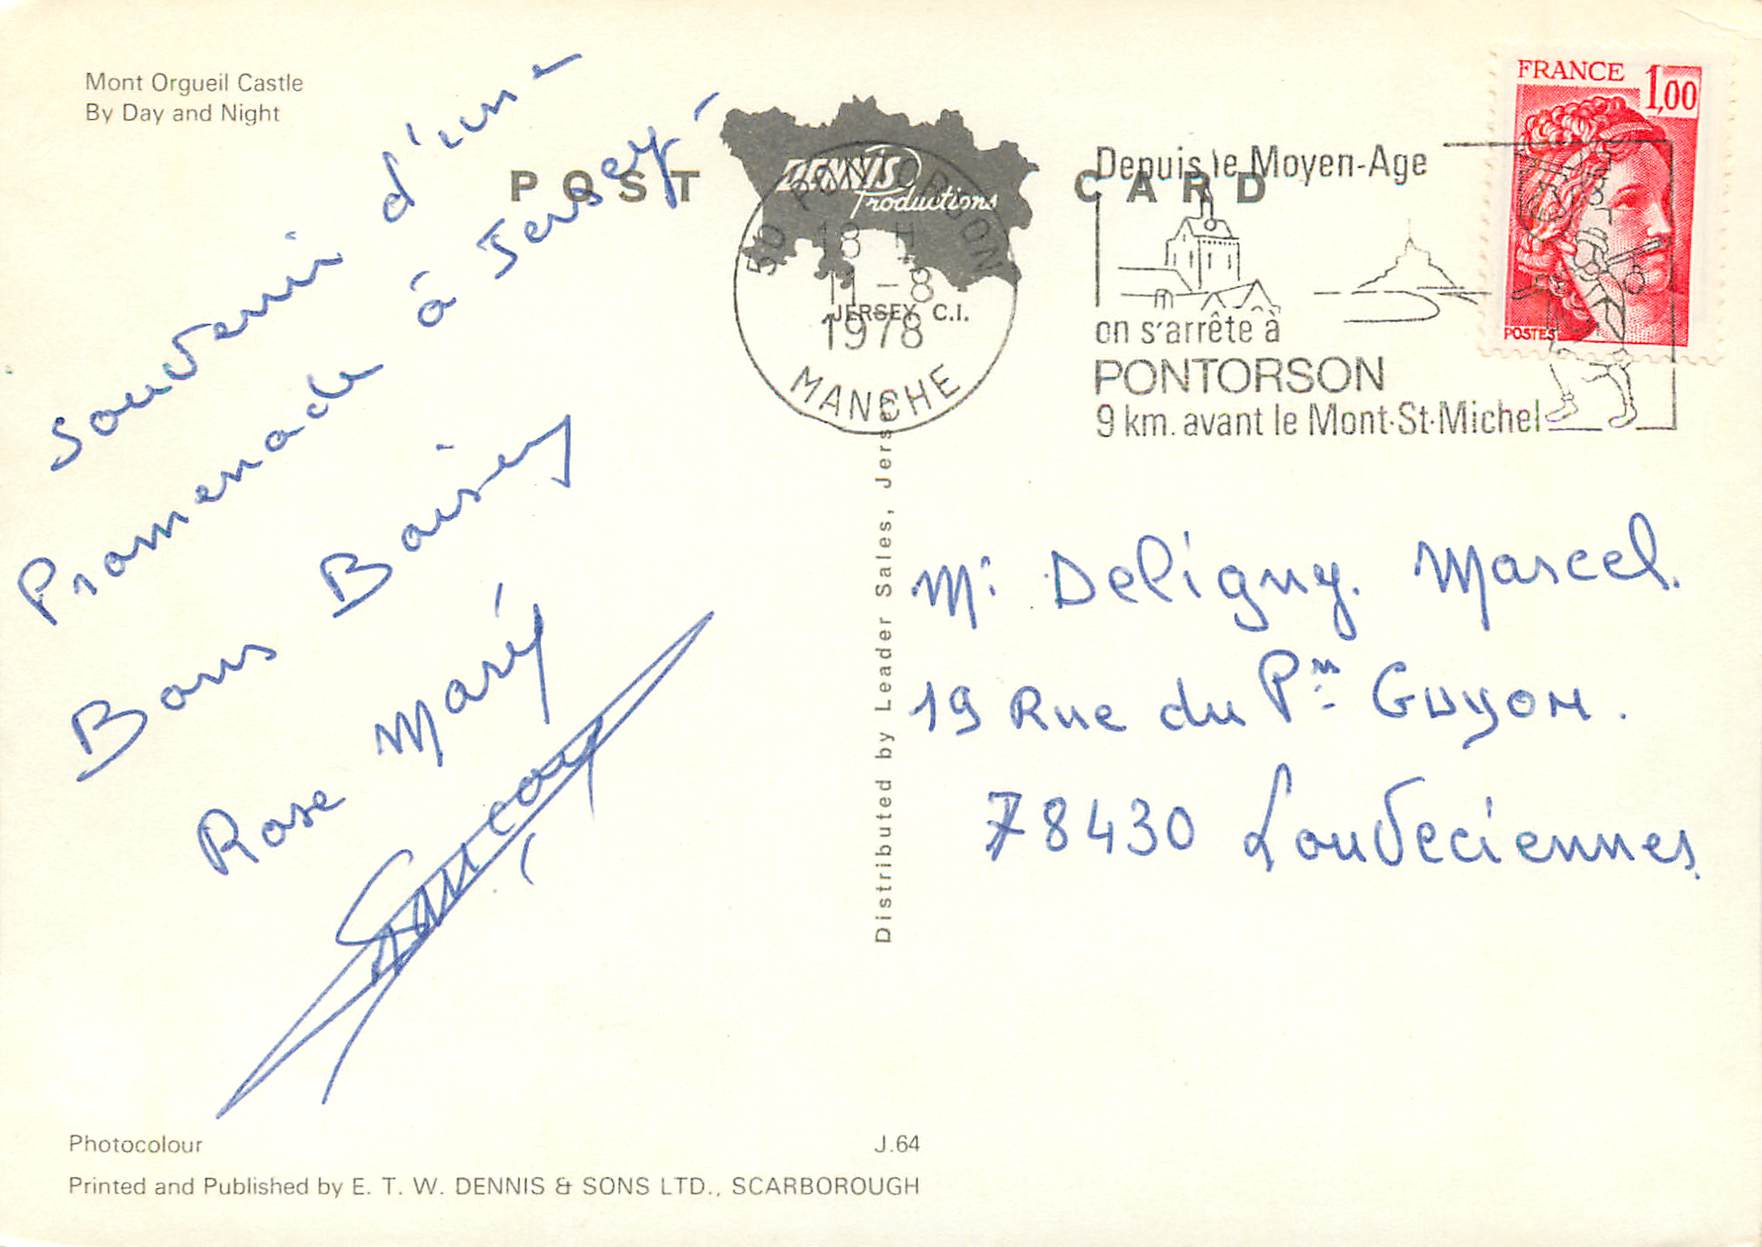 Mont Orgueil Castle
By Day and Night
POST CARD
DENNIS
Productions
JERSEY C.I.
50 PONTORSON
18 H
11-8
1978
MANCHE
Depuis le Moyen-Age
on s'arrête à
PONTORSON
9 km. avant le Mont-St-Michel
FRANCE
1,00
POSTES
Souvenir d'une
Promenade à Jersey
Bons Baisers
Rose Mary
Distributed by Leader Sales, Jersey
Mr Deligny. Marcel.
19 Rue du Pnt Guyon.
78430 Louveciennes.
Photocolour
J.64
Printed and Published by E. T. W. DENNIS & SONS LTD., SCARBOROUGH